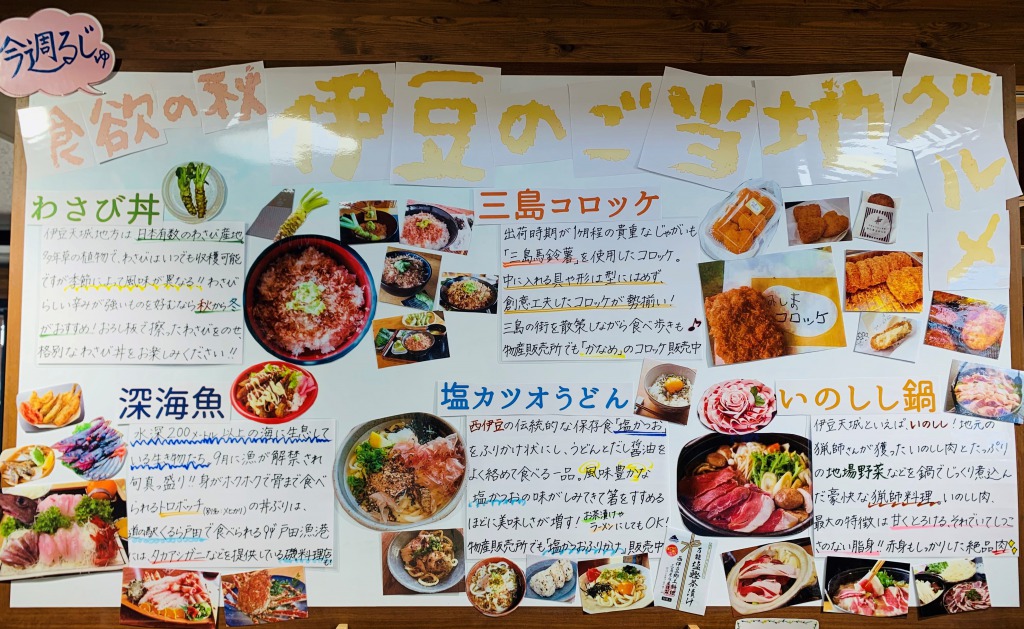 今週るじゅ
食欲の秋
伊豆のご当地グルメ
わさび丼
伊豆天城地方は日本有数のわさび産地
多年草の植物で、わさびはいつでも収穫可能
ですが季節によって風味が異なる!!わさび
らしい辛みが強いものを好むなら秋から冬
がおすすめ!おろし板で擦ったわさびをのせ、
格別なわさび丼をお楽しみください!!
三島コロッケ
出荷時期が1ヶ月程の貴重なじゃがいも
「三島馬鈴薯」を使用したコロッケ。
中に入れる具や形は型にはめず、
創意工夫したコロッケが勢揃い!
三島の街を散策しながら食べ歩きも♪
物産販売所でも「かなめ」のコロッケ販売中
みしま
コロッケ
深海魚
水深200メートル以上の海に生息して
いる生き物たち。9月に漁が解禁され
旬真っ盛り!!身がホクホクで骨まで食べ
られるトロボッチ(メヒカリ)の丼ぶりは、
道の駅くるら戸田で食べられる!戸田漁港
には、タカアシガニなどを提供している磯料理店も
塩カツオうどん
西伊豆の伝統的な保存食「塩かつお」
をふりかけ状にし、うどんとだし醤油を
よく絡めて食べる一品。風味豊かな
塩かつおの味がしみてきて箸をすすめる
ほどに美味しさが増す!お茶漬けや
ラーメンにしてもOK!
物産販売所でも「塩かつおふりかけ」販売中
塩鰹茶漬け
いのしし鍋
伊豆天城といえば、いのしし!地元の
猟師さんが獲ったいのしし肉とたっぷり
の地場野菜などを鍋でじっくり煮込ん
だ豪快な猟師料理。いのしし肉、
最大の特徴は甘くとろける、それでいてしつこ
さのない脂身!!赤身もしっかりした絶品肉